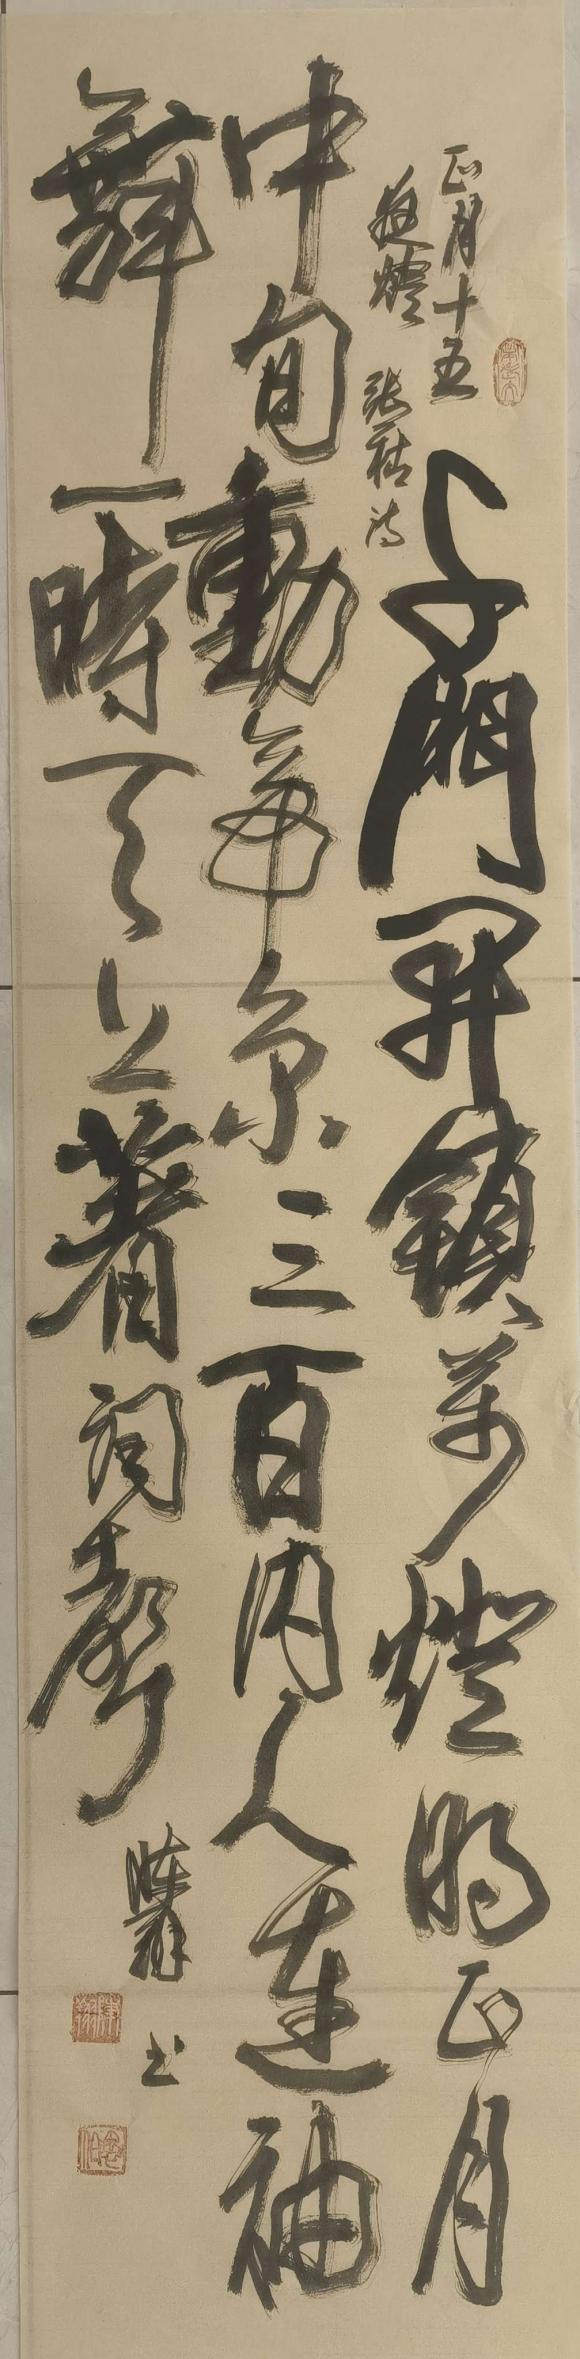 正月十五
夜燈 張祜詩
千門開鎖萬燈明正月
中旬動帝京三百内人連袖
舞一時天上著詞聲
書